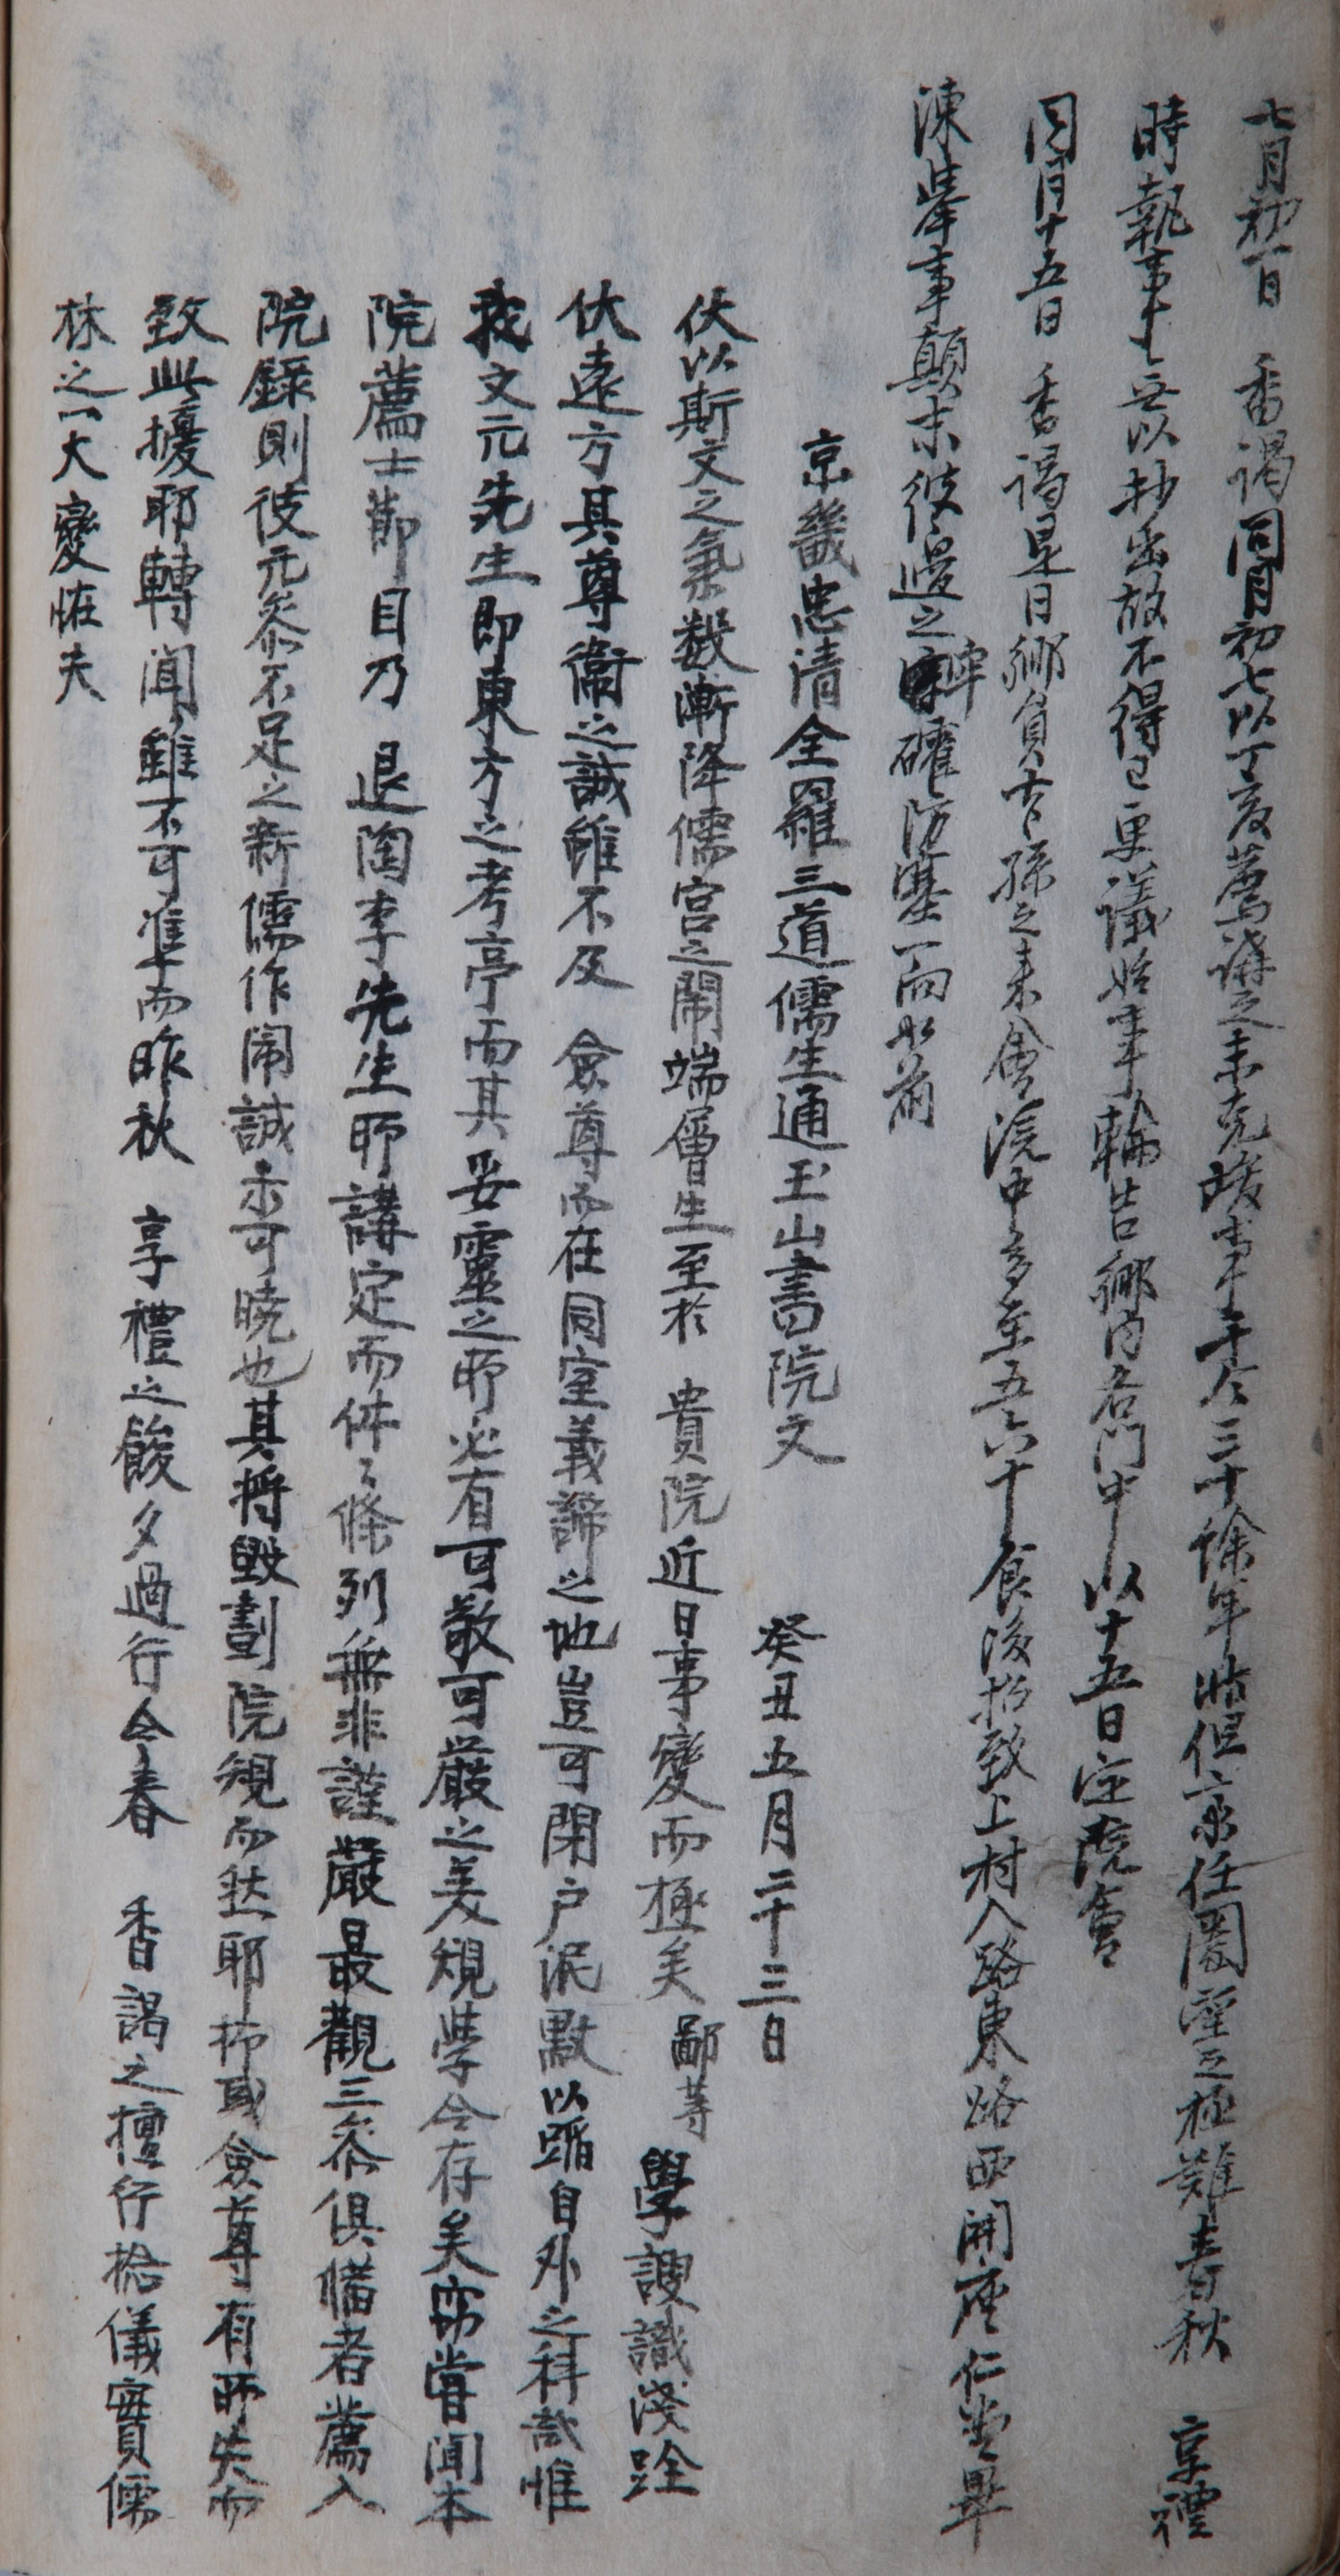 七月初一日 香謁同月初七以丁亥薦講之未克竣事于今三十餘年時但京任圈望之極難春秋 享禮
時執事無以抄出故不得已更議始事輪告鄉內各門中以十五日定院會
同月十五日 香謁是日鄉員本孫之來會院中多至五六十食後招致上村入路東路西開座仁堂畢
陳擧事顛末彼邊之牢確防塞一向如前
京畿忠清全羅三道儒生通玉山書院文 癸丑五月二十三日
伏以斯文之氣數漸降儒宮之鬧端層生至於 貴院近日事變而極矣鄙等學謏識淺跧
伏遠方其尊衞之誠雖不及 僉尊而在同室義諦之地豈可閉戶泯默以踏自外之科哉惟
我文元先生卽東方之考亭而其妥靈之所必有可敬可嚴之美規學令存矣窃嘗聞本
院薦士節目乃 退陶李先生所講定而件々條列無非謹嚴最觀三叅俱備者薦入
院錄則彼元叅不足之新儒作鬧誠未可曉也其將毁劃院規而然耶抑或僉尊有所失而
致此擾耶轉聞雖不可準而昨秋 享禮之餕夕過行今春 香謁之擅行拾儀實儒
林之一大變恠夫